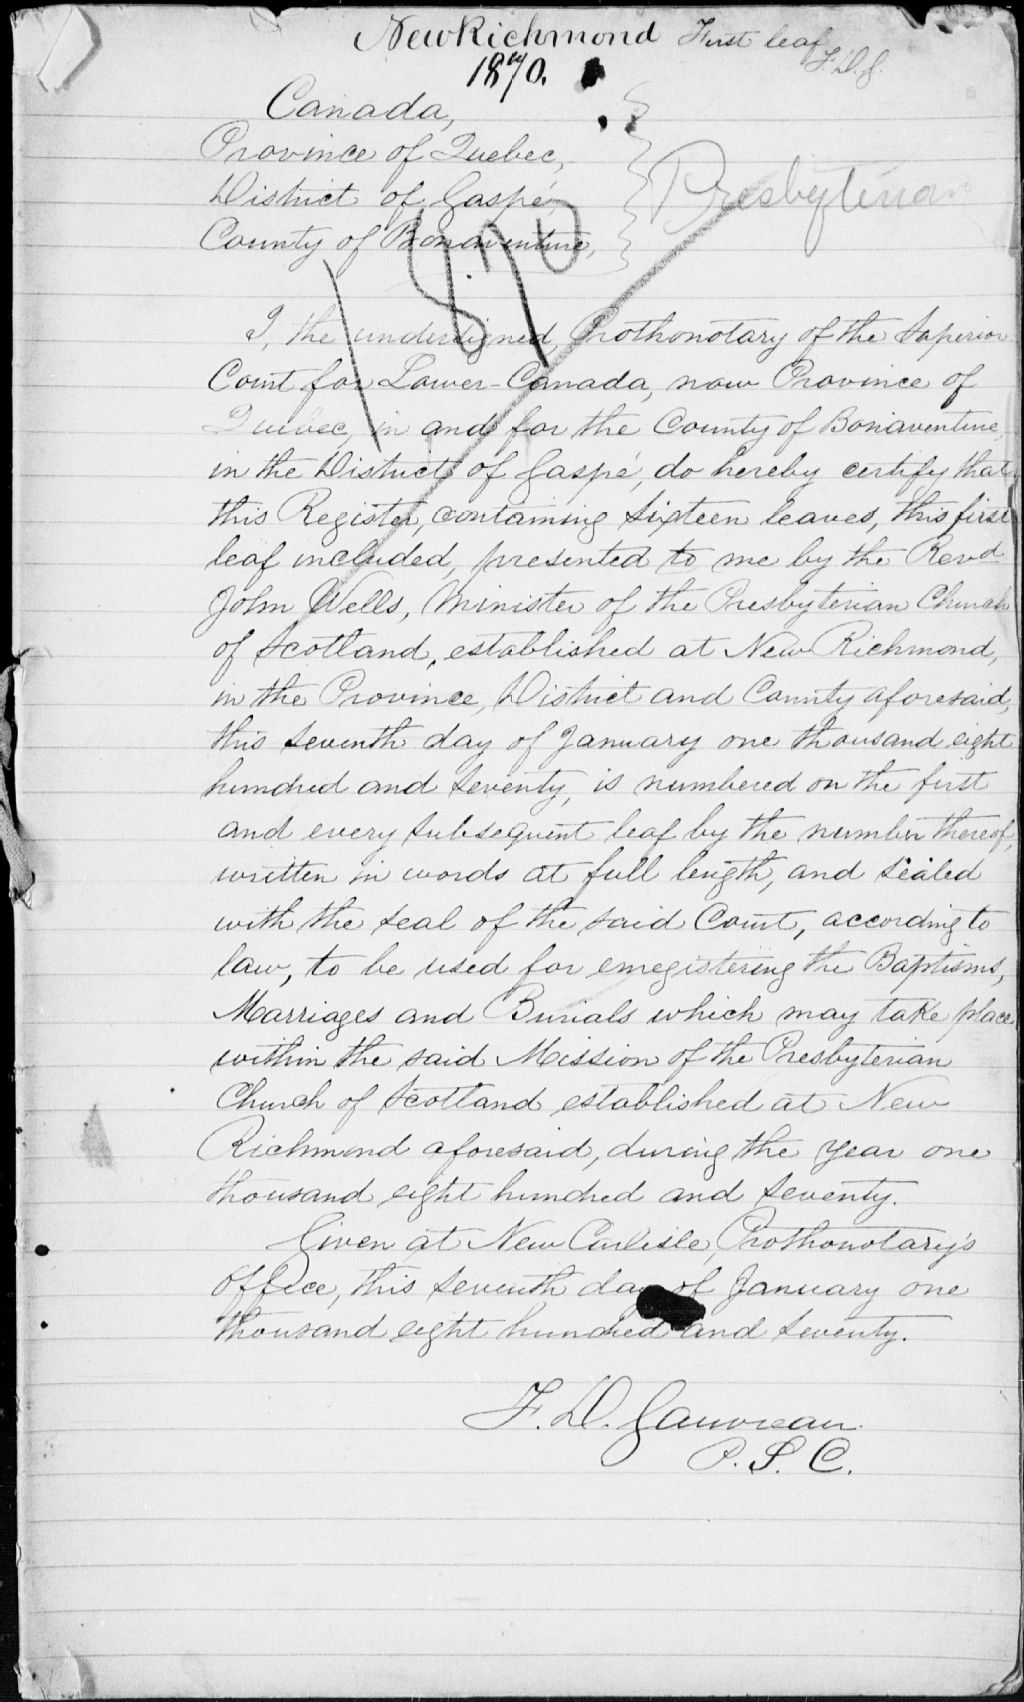 New Richmond First leaf
1870. F. D. G.
Canada,
Province of Quebec,
District of Gaspé,
County of Bonaventure,
Presbyterian
1870
I, the undersigned, Prothonotary of the Superior
Court for Lower-Canada, now Province of
Quebec, in and for the County of Bonaventure,
in the District of Gaspé, do hereby certify that
this Register, containing sixteen leaves, this first
leaf included, presented to me by the Revd
John Wells, Minister of the Presbyterian Church
of Scotland, established at New Richmond,
in the Province, District and County aforesaid,
this seventh day of January one thousand eight
hundred and seventy, is numbered on the first
and every subsequent leaf by the number thereof,
written in words at full length, and sealed
with the seal of the said Court, according to
law, to be used for enregistering the Baptisms,
Marriages and Burials which may take place
within the said Mission of the Presbyterian
Church of Scotland established at New
Richmond aforesaid, during the year one
thousand eight hundred and seventy.
Given at New Carlisle, Prothonotary's
office, this seventh day of January one
thousand eight hundred and seventy.
F. D. Gauvreau
P. S. C.